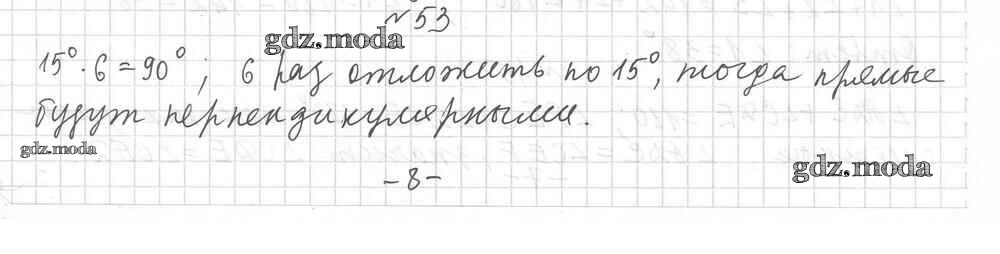 №53
gdz.moda
15° · 6 = 90° ; 6 раз отложить по 15°, тогда прямые
будут перпендикулярными.
gdz.moda
gdz.moda
-8-